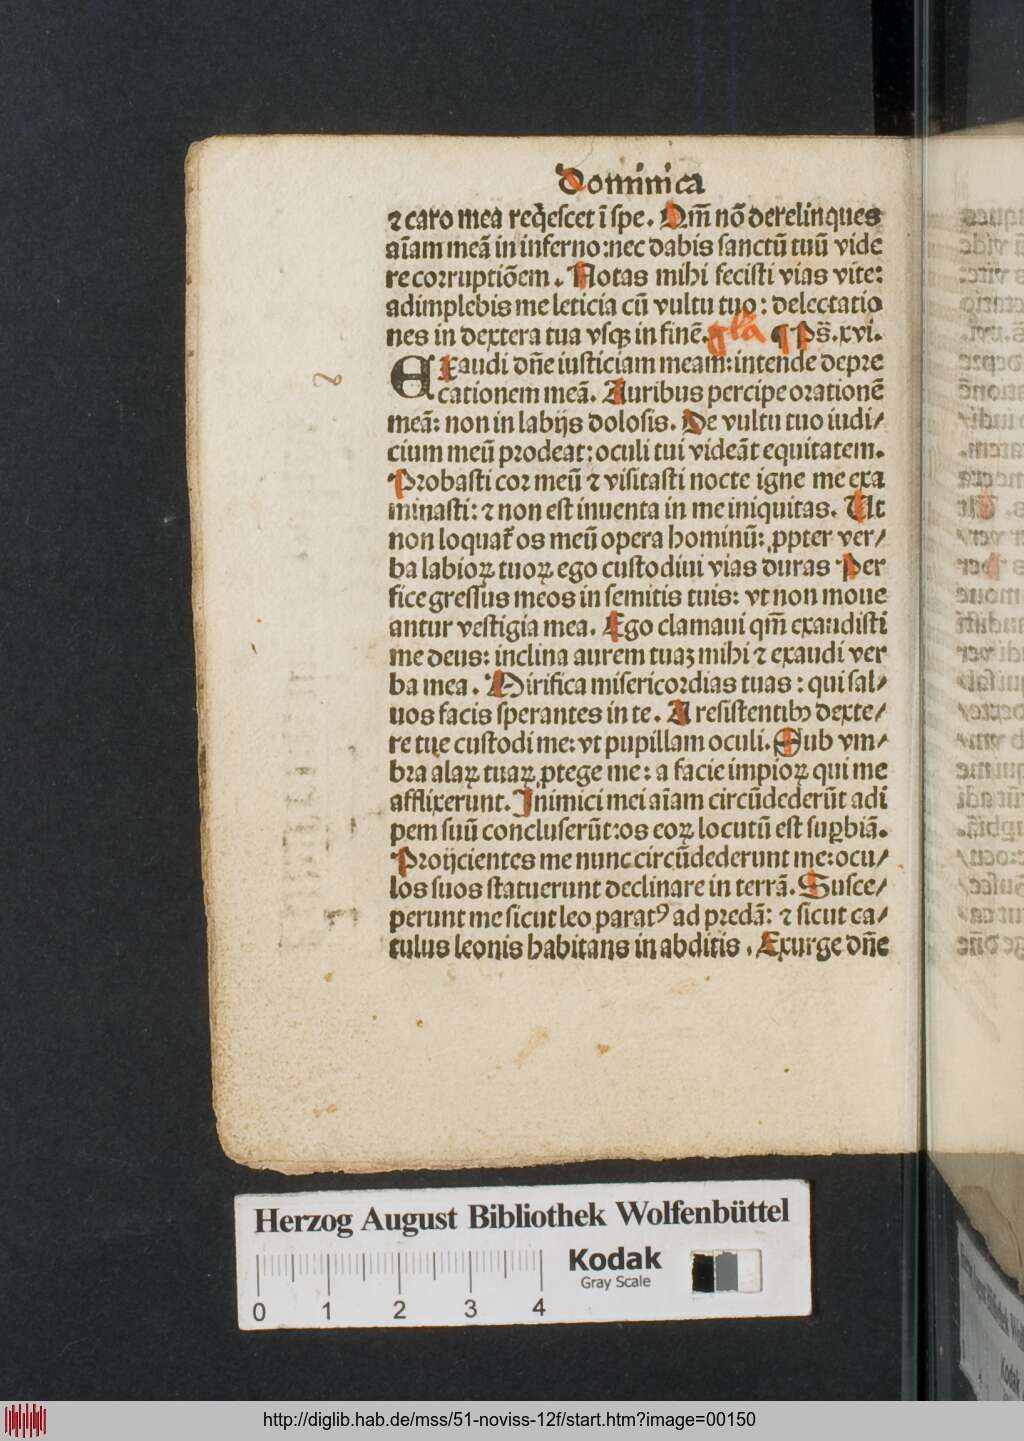 Dominica
⁊ caro mea req̄escet ī spe. Qm̄ nō derelinques
aīam meā in inferno: nec dabis sanctū tuū vide
re corruptiōem. Notas mihi fecisti vias vite:
adimplebis me leticia cū vultu tuo: delectatio
nes in dextera tua vsqꝫ in finē. gl̄a ¶ Ps̄. xvi.
Exaudi dn̄e iusticiam meam: intende depre
cationem meā. Auribus percipe orationē
meā: non in labijs dolosis. De vultu tuo iudi/
cium meū prodeat: oculi tui videāt equitatem.
Probasti cor meū ⁊ visitasti nocte igne me exa
minasti: ⁊ non est inuenta in me iniquitas. Ut
non loquat̄ os meū opera hominū: ꝓpter ver/
ba labioꝝ tuoꝝ ego custodiui vias duras Per
fice gressus meos in semitis tuis: vt non moue
antur vestigia mea. Ego clamaui qm̄ exaudisti
me deus: inclina aurem tuaꝫ mihi ⁊ exaudi ver
ba mea. Mirifica misericordias tuas: qui sal/
uos facis sperantes in te. A resistentibꝰ dexte/
re tue custodi me: vt pupillam oculi. Sub vm/
bra alaꝝ tuaꝝ ꝓtege me: a facie impioꝝ qui me
afflixerunt. Inimici mei aīam circūdederūt adi
pem suū concluserūt: os eoꝝ locutū est suꝑbiā.
Proijcientes me nunc circūdederunt me: ocu/
los suos statuerunt declinare in terrā. Susce/
perunt me sicut leo paratꝰ ad predā: ⁊ sicut ca/
tulus leonis habitans in abditis. Exurge dn̄e
Herzog August Bibliothek Wolfenbüttel
Kodak
Gray Scale
0 1 2 3 4
http://diglib.hab.de/mss/51-noviss-12f/start.htm?image=00150